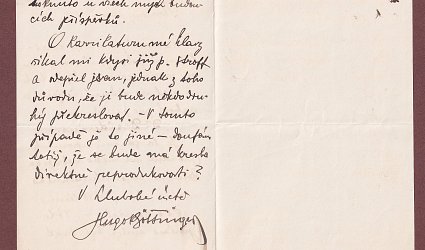 u všech mých budou-
cích příspěvků.
O karrikaturu mé hlavy
říkal mi kdysi již p. 
a já jednak z toho
důvodu, že ji bude někdo dru-
hý překreslovat. – V tomto
případě je to jiné – doufám
že se bude má kresba
direktně reprodukovati?
V hluboké úctě
Hugo Böttinger